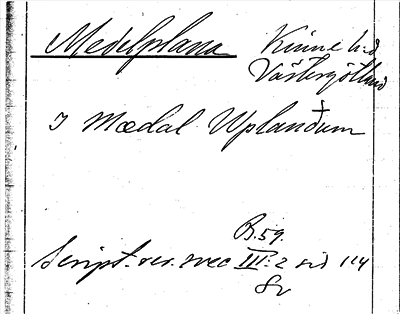 Medelplana
Kinne h:d
Västergötland
I Mædal Uplanðum
B.59.
Script. rer. svec III:2 sid 114
Sv